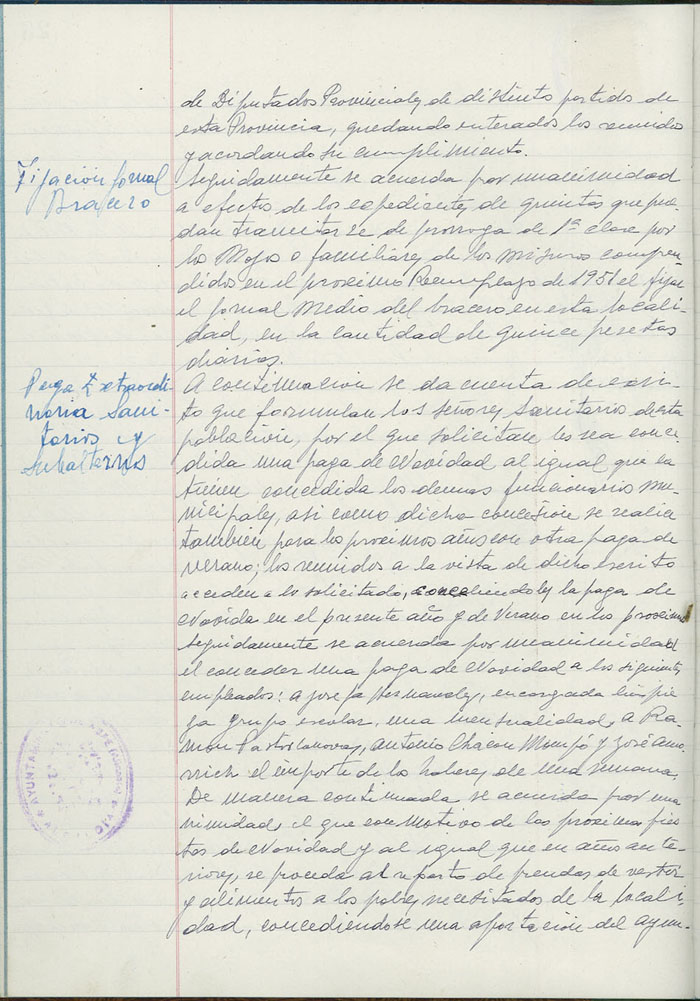 de Diputados Provinciales de distinto partido de
esta Provincia, quedando enterados los reunidos
y acordando su cumplimiento.
Fijación jornal
Bracero
Seguidamente se acuerda por unanimidad
a efectos de los expedientes de quintas que pue-
dan tramitarse de prorroga de 1ª clase por
los Mozos o familiares de los mismos compren-
didos en el proximo Reemplazo de 1951 el fijar
el jornal medio del bracero en esta locali-
dad, en la cantidad de quince pesetas
diarias.
Paga Extraordi-
naria Sani-
tarios y
Subalternos
A continuacion se da cuenta de escri-
to que formulan los señores sanitarios de esta
población, por el que solicitan les sea conce-
dida una paga de Navidad al igual que la
tienen concedida los demas funcionarios mu-
nicipales, asi como dicha concesión se realice
tambien para los proximos años con otra paga de
verano; los reunidos a la vista de dicho escrito
acceden a lo solicitado, concediendoles la paga de
Navida en el presente año y de Verano en los proximos
Seguidamente se acuerda por unanimidad
el conceder una paga de Navidad a los siguientes
empleados: a Josefa Hernandez, encargada limpie-
za grupo escolar, una mensualidad, a Ra-
món Pastor Canovas, Antonio Chacon Mompó y José
el importe de los haberes de una semana.
De manera continuada se acuerda por una
nimidad, el que con motivo de las proximas fies-
tas de Navidad y al igual que en años ante-
riores, se proceda al reparto de prendas de vestir
y alimentos a los pobres necesitados de la locali-
dad, concediendose una aportación del ayun-
AYUNTAMIENTO